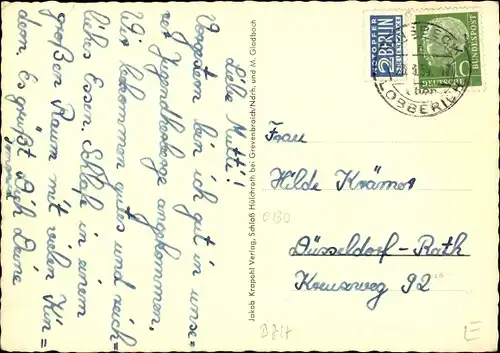 Liebe Mutti!
Vorgstern bin ich gut in unse=
rer Jugendherberge angekommen.
Wir bekommen gutes und reich=
liches Essen. Schlafe in einem
großen Raum mit vielen Kin=
dern. Es grüßt Dich Deine
Jakob Krapohl Verlag, Schloß Hülchrath bei Grevenbroich/Ndrh. und M. Gladbach
NOTOPFER
2 BERLIN
STEUERMARKE
DEUTSCHE BUNDESPOST
10
LOBBERICH
Frau
Hilde Krämer
Düsseldorf-Rath
Kreuzweg 92